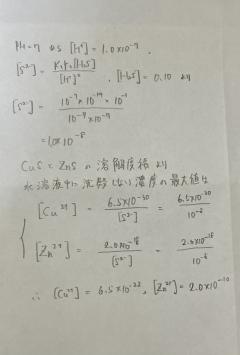 PH=7 のとき [H⁺]=1.0×10⁻⁷.
[S²⁻]= K₁K₂[H₂S] / [H⁺]² , [H₂S]=0.10 より
[S²⁻]= 10⁻⁷×10⁻¹⁴×10⁻¹ / 10⁻⁷×10⁻⁷
=1.0×10⁻⁸
CuSとZnSの溶解度積より
水溶液中に沈殿しない濃度の最大値は
[Cu²⁺] = 6.5×10⁻³⁰ / [S²⁻] = 6.5×10⁻³⁰ / 10⁻⁸
[Zn²⁺] = 2.0×10⁻¹⁸ / [S²⁻] = 2.0×10⁻¹⁸ / 10⁻⁸
∴ [Cu²⁺] = 6.5×10⁻²², [Zn²⁺]=2.0×10⁻¹⁰